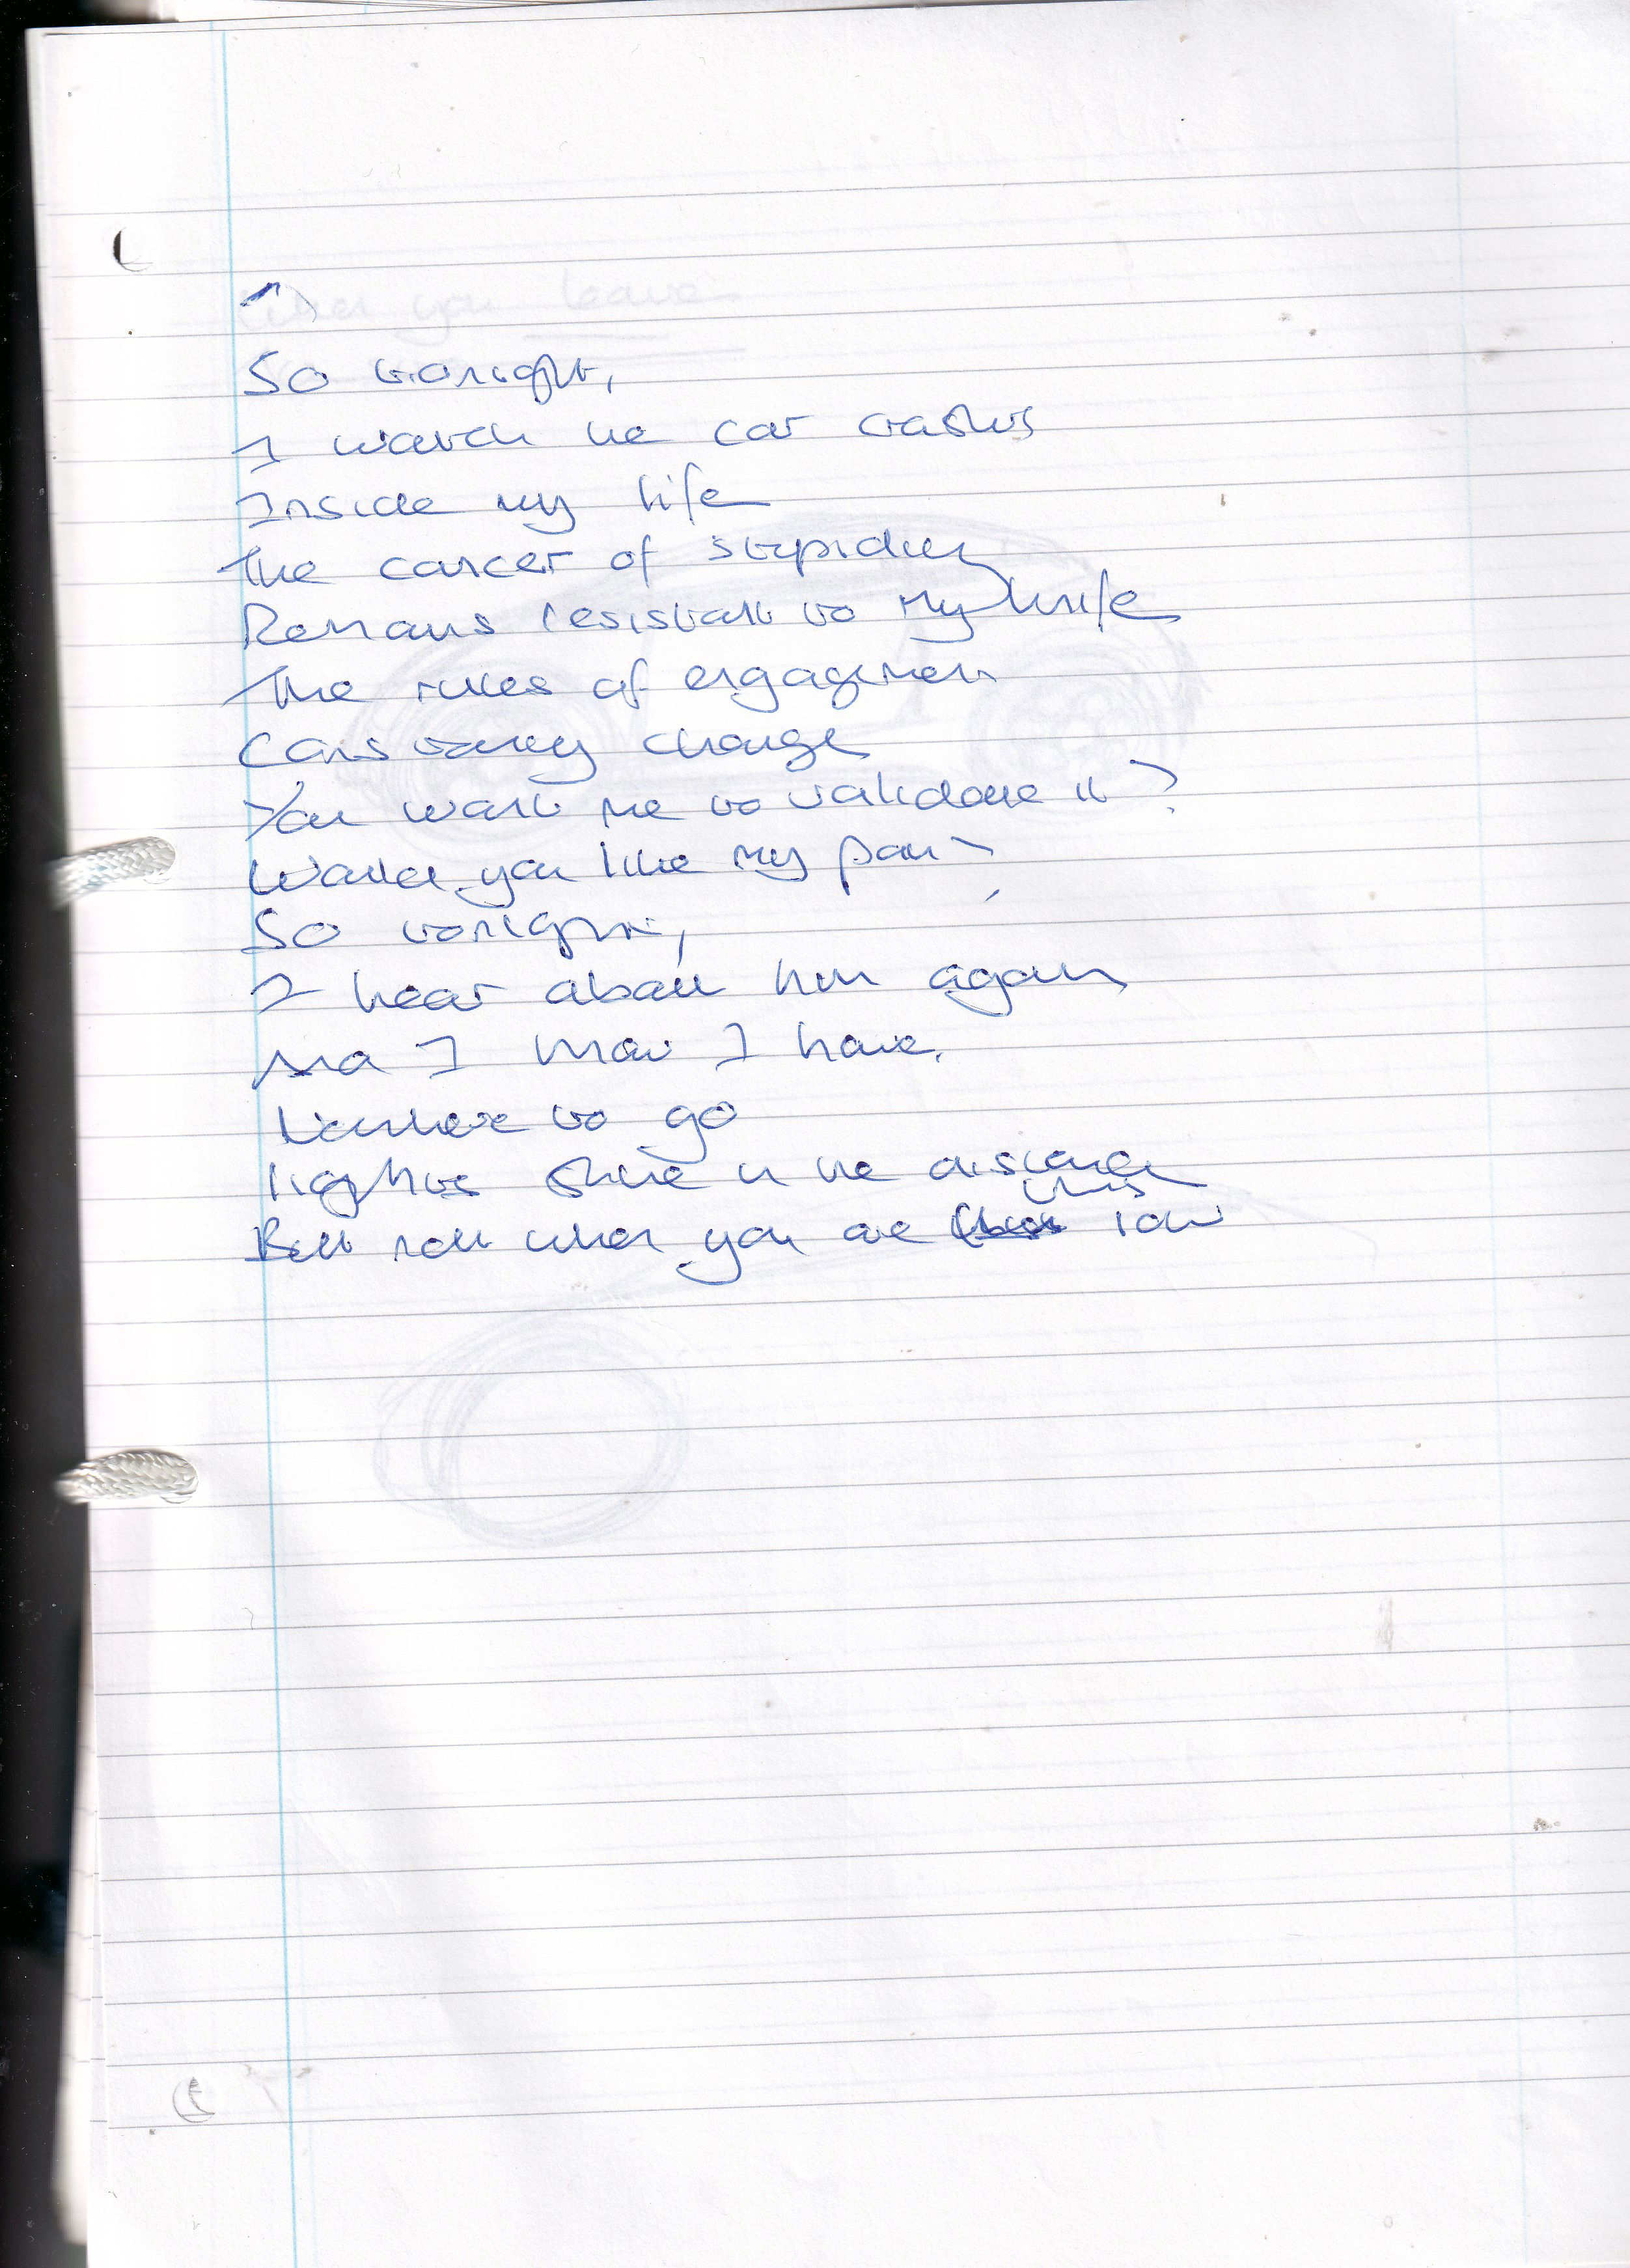 So tonight,
I watch the car crashes
Inside my life
The cancer of stupidity
Remains resistant to my knife
The rules of engagement
Constantly change
You want me to validate it?
Would you like my pain?
So tonight,
I hear about him again
And I know I have
Nowhere to go
Lights shine in the distance
But not when you are this low